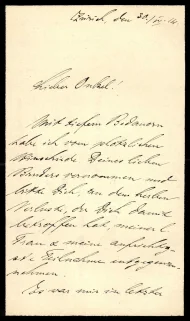 Zürich, den 30./IV. 14.
Lieber Onkel!
Mit tiefem Bedauern
habe ich vom plötzlichen
Hinschiede Deines lieben
Bruders vernommen und
bitte Dich, zu dem herben
Verluste, der Dich damit
betroffen hat, meiner l.
Frau & meine aufrichtig-
ste Teilnahme entgegenzu-
nehmen.
Es war mir in letzter